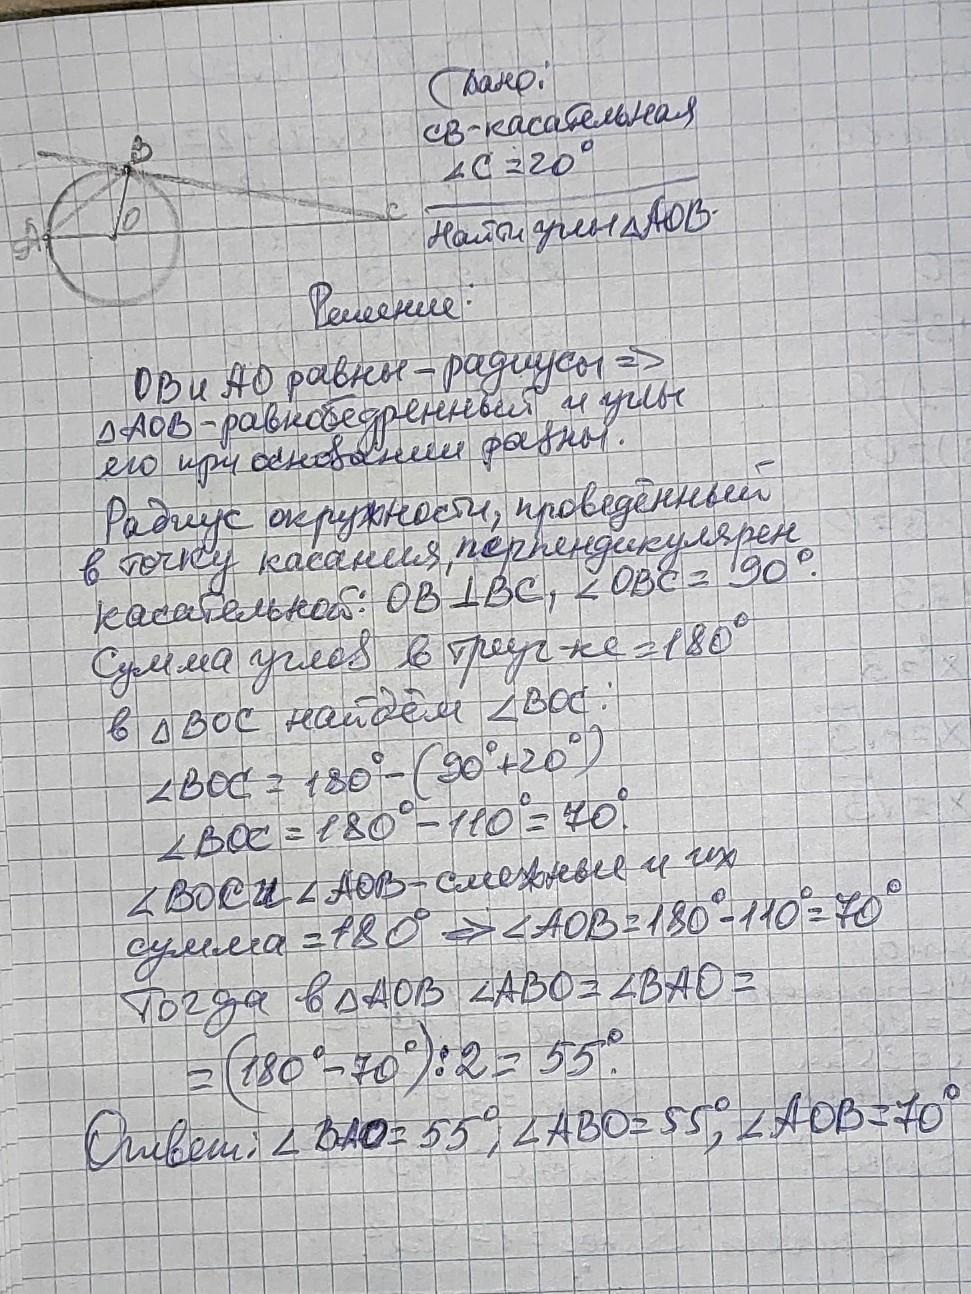 Дано:
B
CB-касательная
∠C = 20°
O
C
A
Найти углы △AOB.
Решение:
OB и AO равны - радиусы =>
△AOB - равнобедренный и углы
его при основании равны.
Радиус окружности, проведённый
в точку касания, перпендикулярен
касательной: OB⊥BC, ∠OBC = 90°.
Сумма углов в треуг-ке = 180°
в △BOC найдём ∠BOC:
∠BOC = 180° - (90° + 20°)
∠BOC = 180° - 110° = 70°.
∠BOC и ∠AOB - смежные и их
сумма = 180° => ∠AOB = 180° - 110° = 70°
Тогда в △AOB ∠ABO = ∠BAO =
= (180° - 70°) : 2 = 55°.
Ответ: ∠BAO = 55°, ∠ABO = 55°, ∠AOB = 70°